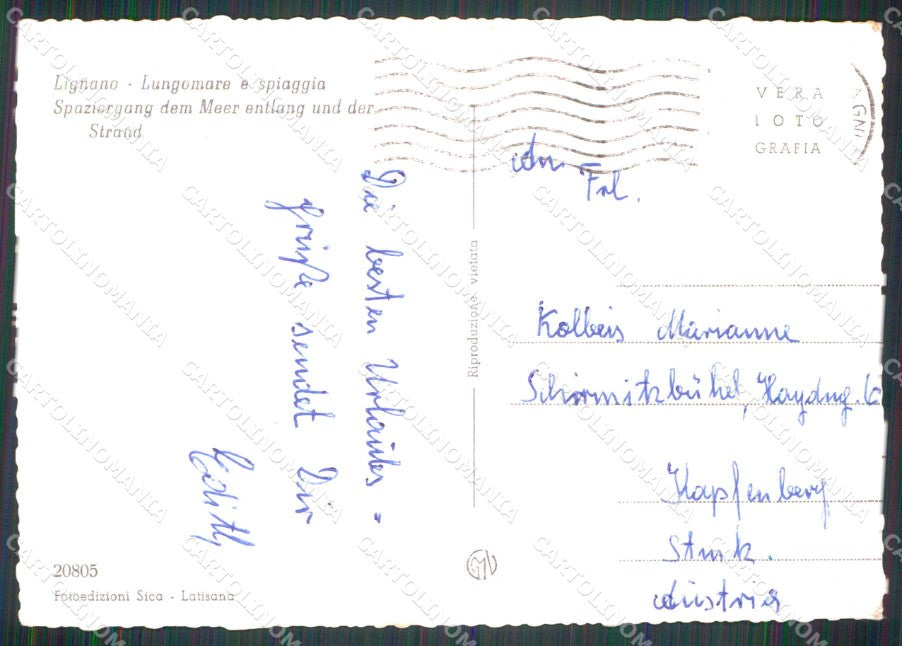 Lignano - Lungomare e spiaggia
Spaziergang dem Meer entlang und der
Strand
VERA
FOTO
GRAFIA
An
Frl.
Kolbeis Marianne
Schirmitzbühel, Haydng. 6
Kapfenberg
Stmk.
Austria
Die besten Urlaubs -
grüße sendet Dir
Edith
Riproduzione vietata
20805
Fotoedizioni Sica - Latisana
CARTOLINOMANIA